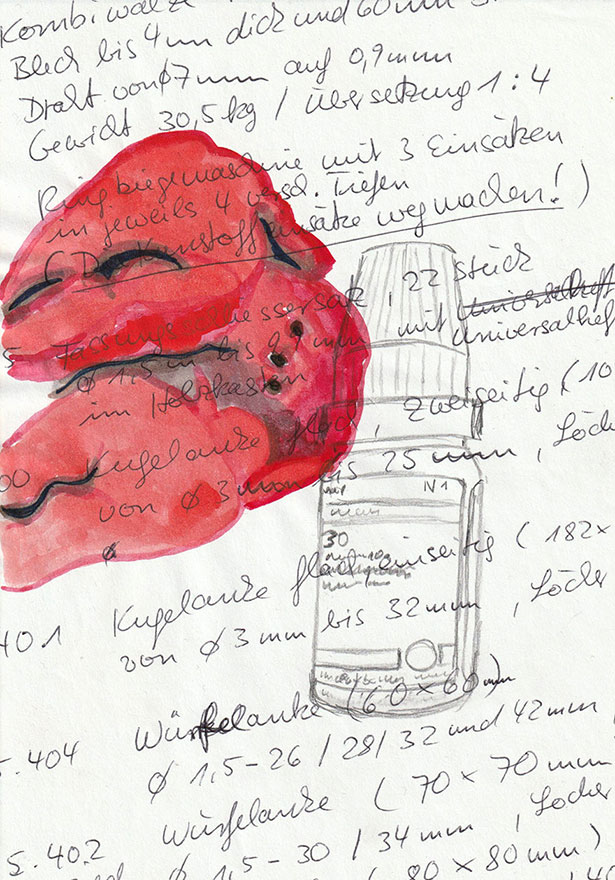 Kombiwalze
Blech bis 4mm dick und 60mm
Draht von ϕ 7mm auf 0,9mm
Gewicht 30,5kg / Übersetzung 1:4
Ringbiegemaschine mit 3 Einsätzen
in jeweils 4 versch. Tiefen
(D. Kunstoffeinsätze wegmachen!)
Fassungs , 22 Stück
ϕ 1,5mm bis 9,9mm mit universalheft
universalhef
im Holzkasten
00 Kugelanke flach, zweiseitig (10
von ϕ 3mm bis 25mm, Löche
N1
30
40.1 Kugelanke flach einseitig (182x
von ϕ 3mm bis 32mm, Löcher
5.404 Würfelanke (60x60mm
ϕ 1,5-26/28/32 und 42mm
5.402 Würfelanke (70x70mm
ϕ 1,5-30/34mm, Löcher
(80x80mm)